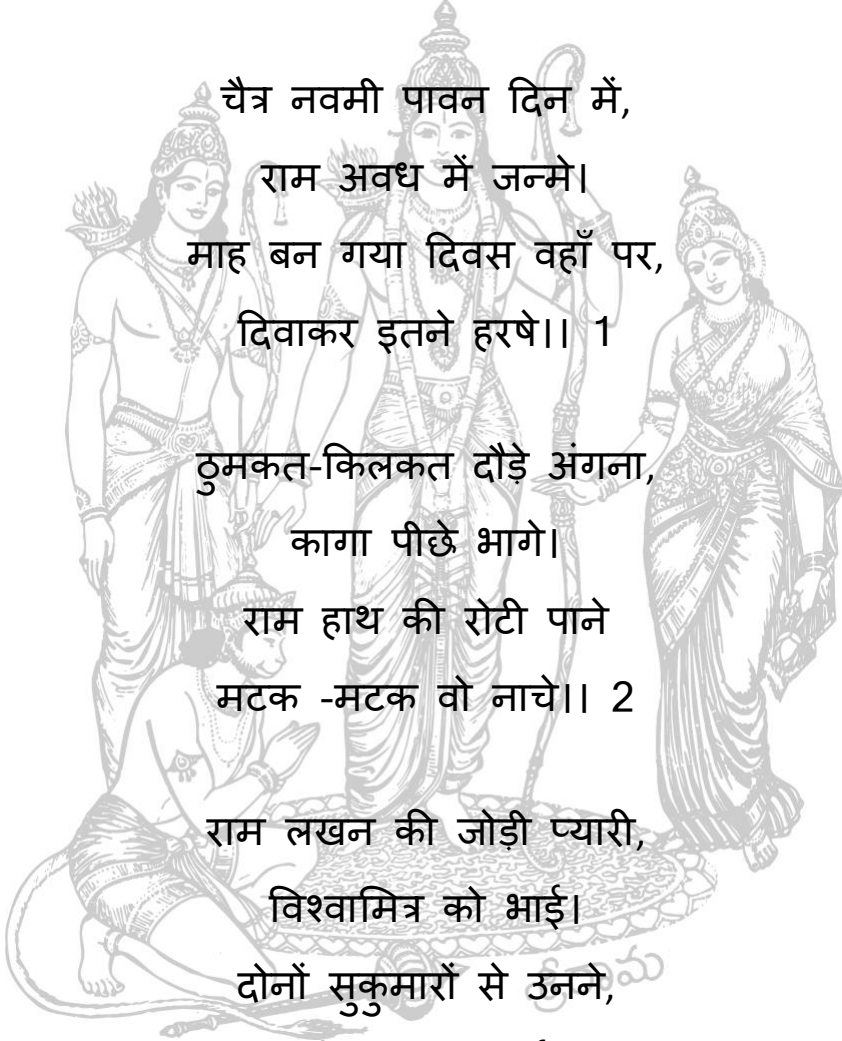 चैत्र नवमी पावन दिन में,
राम अवध में जन्मे।
माह बन गया दिवस वहाँ पर,
दिवाकर इतने हरषे।। 1
ठुमकत-किलकत दौड़े अंगना,
कागा पीछे भागे।
राम हाथ की रोटी पाने
मटक -मटक वो नाचे।। 2
राम लखन की जोड़ी प्यारी,
विश्वामित्र को भाई।
दोनों सुकुमारों से उनने,